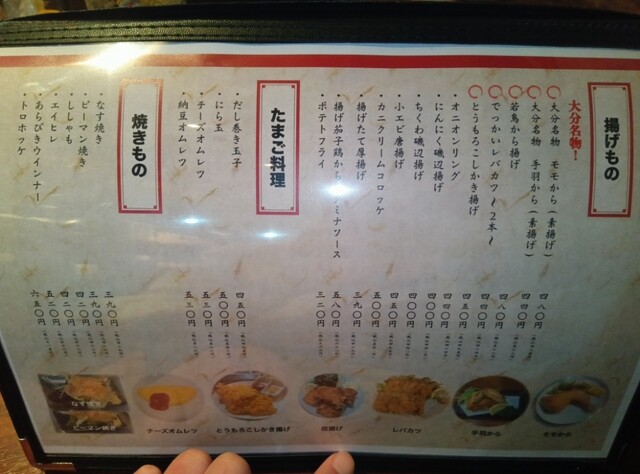 揚げもの
大分名物!
大分名物 モモから(素揚げ) 四八〇円
大分名物 手羽から(素揚げ) 四四〇円
若鳥から揚げ 四八〇円
でっかいレバカツ~2本~ 四四〇円
とうもろこしかき揚げ 四五〇円
・オニオンリング 四四〇円
・にんにく磯辺揚げ 四〇〇円
・ちくわ磯辺揚げ 四〇〇円
・小エビ唐揚げ 四五〇円
・カニクリームコロッケ 五〇〇円
・揚げたて厚揚げ 三九〇円
・揚げ茄子鶏から ミナソース 五八〇円
・ポテトフライ 三二〇円
たまご料理
・だし巻き玉子 四五〇円
・にら玉 五三〇円
・チーズオムレツ 五三〇円
・納豆オムレツ 五三〇円
焼きもの
・なす焼き 三九〇円
・ピーマン焼き 三九〇円
・ししゃも 四二〇円
・エイヒレ 四二〇円
・あらびきウインナー 五二〇円
・トロホッケ 六五〇円
なす焼き
ピーマン焼き
チーズオムレツ
とうもろこしかき揚げ
唐揚げ
レバカツ
手羽から
ももから